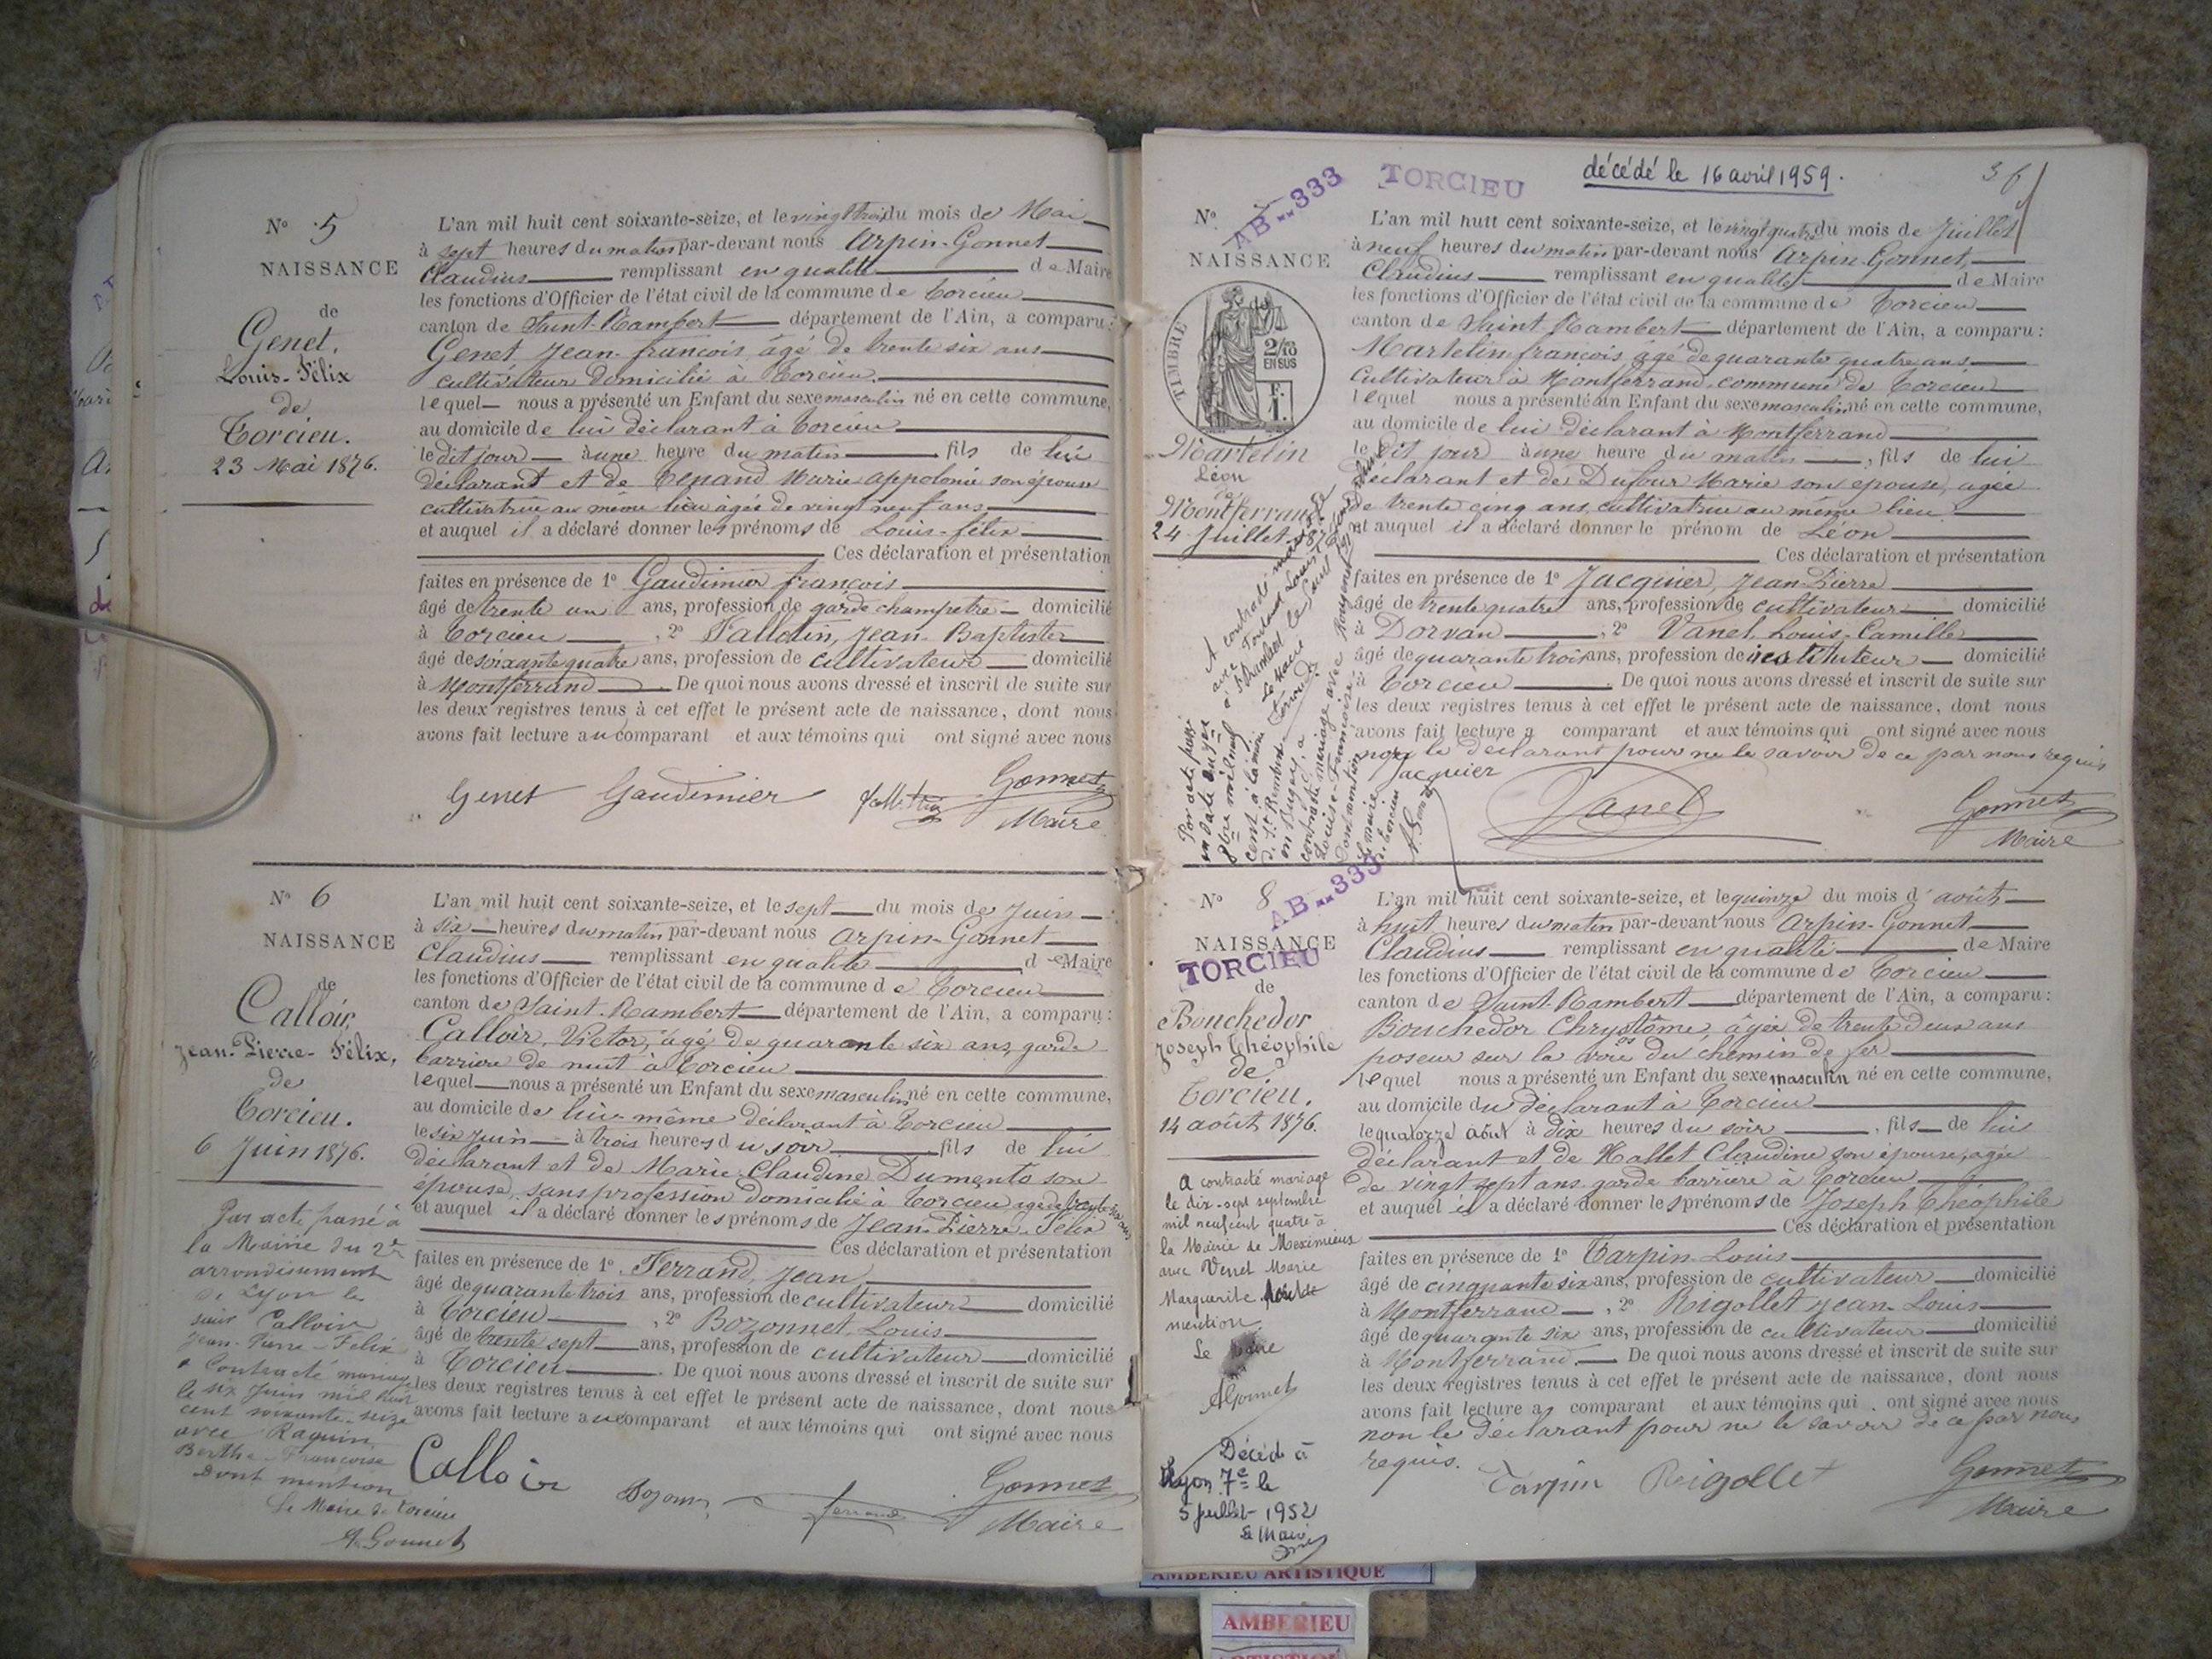 N° 5
NAISSANCE
de
Genet,
Louis-Félix
de
Torcieu.
23 Mai 1876.
L'an mil huit cent soixante-seize, et le vingt trois du mois de Mai
à sept heures du matin par-devant nous Arpin-Gonnet
Claudius remplissant en qualité de Maire
les fonctions d'Officier de l'état civil de la commune de Torcieu
canton de Saint-Rambert département de l'Ain, a comparu:
Genet Jean-françois, âgé de trente six ans
cultivateur domicilié à Torcieu.
lequel nous a présenté un Enfant du sexe masculin né en cette commune,
au domicile de lui déclarant à Torcieu
le dit jour à une heure du matin fils de lui
déclarant et de Marie Appolonie son épouse
cultivatrice au même lieu âgée de vingt neuf ans
et auquel il a déclaré donner les prénoms de Louis-félix
Ces déclaration et présentation
faites en présence de 1° Gaudimier françois
âgé de trente un ans, profession de garde champetre domicilié
à Torcieu, 2° Jean-Baptiste
âgé de soixante quatre ans, profession de cultivateur domicilié
à Montferrand. De quoi nous avons dressé et inscrit de suite sur
les deux registres tenus à cet effet le présent acte de naissance, dont nous
avons fait lecture au comparant et aux témoins qui ont signé avec nous
Genet Gaudimier Gonnet
Maire
N° 6
NAISSANCE
de
Calloir,
Jean-Pierre-Félix,
de
Torcieu.
6 Juin 1876.
Par acte passé à
la Mairie du 2e
arrondissement
de Lyon le
Calloir
Jean-Pierre-Felix
a Contracté mariage
le six Juin mil huit
cent soixante-seize
avec Raquin
Berthe-Françoise
Dont mention
Le Maire de Torcieu
A. Gonnet
L'an mil huit cent soixante-seize, et le sept du mois de Juin
à six heures du matin par-devant nous Arpin-Gonnet
Claudius remplissant en qualité de Maire
les fonctions d'Officier de l'état civil de la commune de Torcieu
canton de Saint-Rambert département de l'Ain, a comparu:
Calloir, Victor, âgé de quarante six ans, garde
barrière de nuit à Torcieu
lequel nous a présenté un Enfant du sexe masculin né en cette commune,
au domicile de lui-même déclarant à Torcieu
le six juin à trois heures du soir fils de lui
déclarant et de Marie Claudine Dumento son
épouse, sans profession domicilié à Torcieu agée de
et auquel il a déclaré donner les prénoms de Jean-Pierre-Félix
Ces déclaration et présentation
faites en présence de 1° Ferrand, Jean
âgé de quarante trois ans, profession de cultivateur domicilié
à Torcieu, 2° Bozonnet, Louis
âgé de trente sept ans, profession de cultivateur domicilié
à Torcieu. De quoi nous avons dressé et inscrit de suite sur
les deux registres tenus à cet effet le présent acte de naissance, dont nous
avons fait lecture au comparant et aux témoins qui ont signé avec nous
Calloir ferrand Gonnet
Maire
TORCIEU
décédé le 16 avril 1959.
36
N° 7
AB--333
NAISSANCE
TIMBRE
2/10
EN SUS
F.
1.
Martelin
Léon
de
Montferrand
24 Juillet 1876
A contracté mariage
L'an mil huit cent soixante-seize, et le vingt quatre du mois de Juillet
à neuf heures du matin par-devant nous Arpin-Gonnet,
Claudius remplissant en qualité de Maire
les fonctions d'Officier de l'état civil de la commune de Torcieu
canton de Saint-Rambert département de l'Ain, a comparu:
Martelin françois âgé de quarante quatre ans
Cultivateur à Montferrand, commune de Torcieu
lequel nous a présenté un Enfant du sexe masculin né en cette commune,
au domicile de lui déclarant à Montferrand
le dit jour à une heure du matin, fils de lui
déclarant et de Dufour Marie son épouse, agée
de trente cinq ans, cultivatrice au même lieu
et auquel il a déclaré donner le prénom de Léon
Ces déclaration et présentation
faites en présence de 1° Jacquier, Jean-Pierre
âgé de trente quatre ans, profession de cultivateur domicilié
à Dorvan, 2° Vanel, Louis-Camille
âgé de quarante trois ans, profession de instituteur domicilié
à Torcieu. De quoi nous avons dressé et inscrit de suite sur
les deux registres tenus à cet effet le présent acte de naissance, dont nous
avons fait lecture a comparant et aux témoins qui ont signé avec nous
non le déclarant pour ne le savoir de ce par nous requis
Jacquier Vanel Gonnet
Maire
N° 8
AB--333
NAISSANCE
TORCIEU
de
Bouchedor
Joseph Théophile
de
Torcieu.
14 août 1876.
A contracté mariage
le dix-sept septembre
mil neuf cent quatre à
la Mairie de Meximieux
avec Venet Marie
Marguerite
mention.
Le Maire
AGonnet
Décédé à
Lyon 7e le
5 juillet 1952
Le Maire
L'an mil huit cent soixante-seize, et le quinze du mois d'août
à huit heures du matin par-devant nous Arpin-Gonnet
Claudius remplissant en qualité de Maire
les fonctions d'Officier de l'état civil de la commune de Torcieu
canton de Saint-Rambert département de l'Ain, a comparu:
Bouchedor Chrystôme, âgée de trente deux ans
poseur sur la voie du chemin de fer
lequel nous a présenté un Enfant du sexe masculin né en cette commune,
au domicile du déclarant à Torcieu
le quatorze août à dix heures du soir, fils de lui
déclarant et de Hallet Claudine son épouse, agée
de vingt sept ans garde barrière à Torcieu
et auquel il a déclaré donner les prénoms de Joseph Théophile
Ces déclaration et présentation
faites en présence de 1° Tarpin-Louis
âgé de cinquante six ans, profession de cultivateur domicilié
à Montferrand, 2° Rigollet Jean-Louis
âgé de quarante six ans, profession de cultivateur domicilié
à Montferrand. De quoi nous avons dressé et inscrit de suite sur
les deux registres tenus à cet effet le présent acte de naissance, dont nous
avons fait lecture a comparant et aux témoins qui ont signé avec nous
non le déclarant pour ne le savoir de ce par nous
requis. Tarpin Rigollet Gonnet
Maire
AMBERIEU ARTISTIQUE
AMBERIEU
ARTISTIQUE